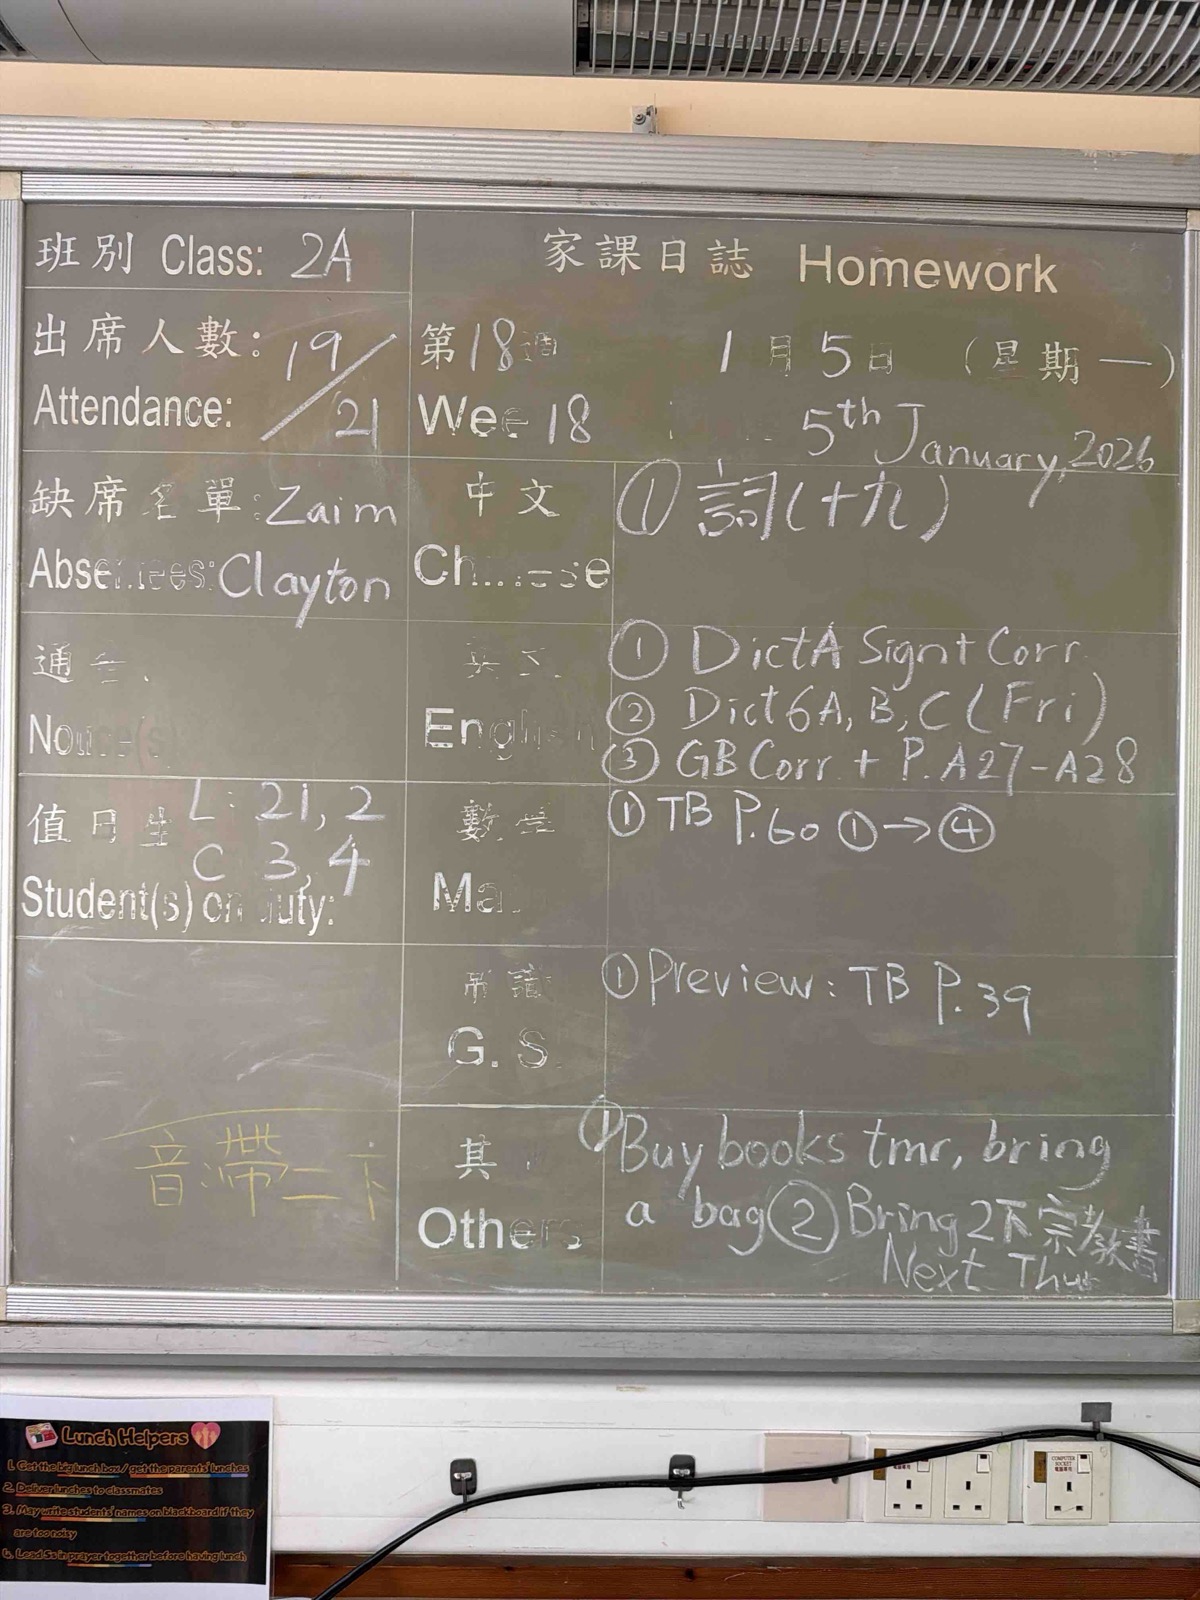 班別 Class: 2A
家課日誌 Homework
出席人數: 19/21
Attendance:
第18週 1月5日 (星期一)
Week 18 5th January, 2026
缺席名單: Zaim
Absentees: Clayton
中文
Chinese
① 詞(十九)
通告
Notice(s)
英文
English
① DictA Sign+Corr
② Dict6A, B, C (Fri)
③ GB Corr + P.A27-A28
值日生 L: 21, 2
C 3, 4
Student(s) on duty:
數學
Ma
① TB P.60 ①→④
常識
G. S.
① Preview: TB P.39
音 帶二下
其
Others
① Buy books tmr, bring
a bag ② Bring 2下宗教書
Next Thur
Lunch Helpers
1. Get the big lunch box / get the parents' lunches
2. Deliver lunches to classmates
3. May write students' names on blackboard if they
are too noisy
4. Lead Ss in prayer together before having lunch
COMPUTER
SOCKET
電腦專用